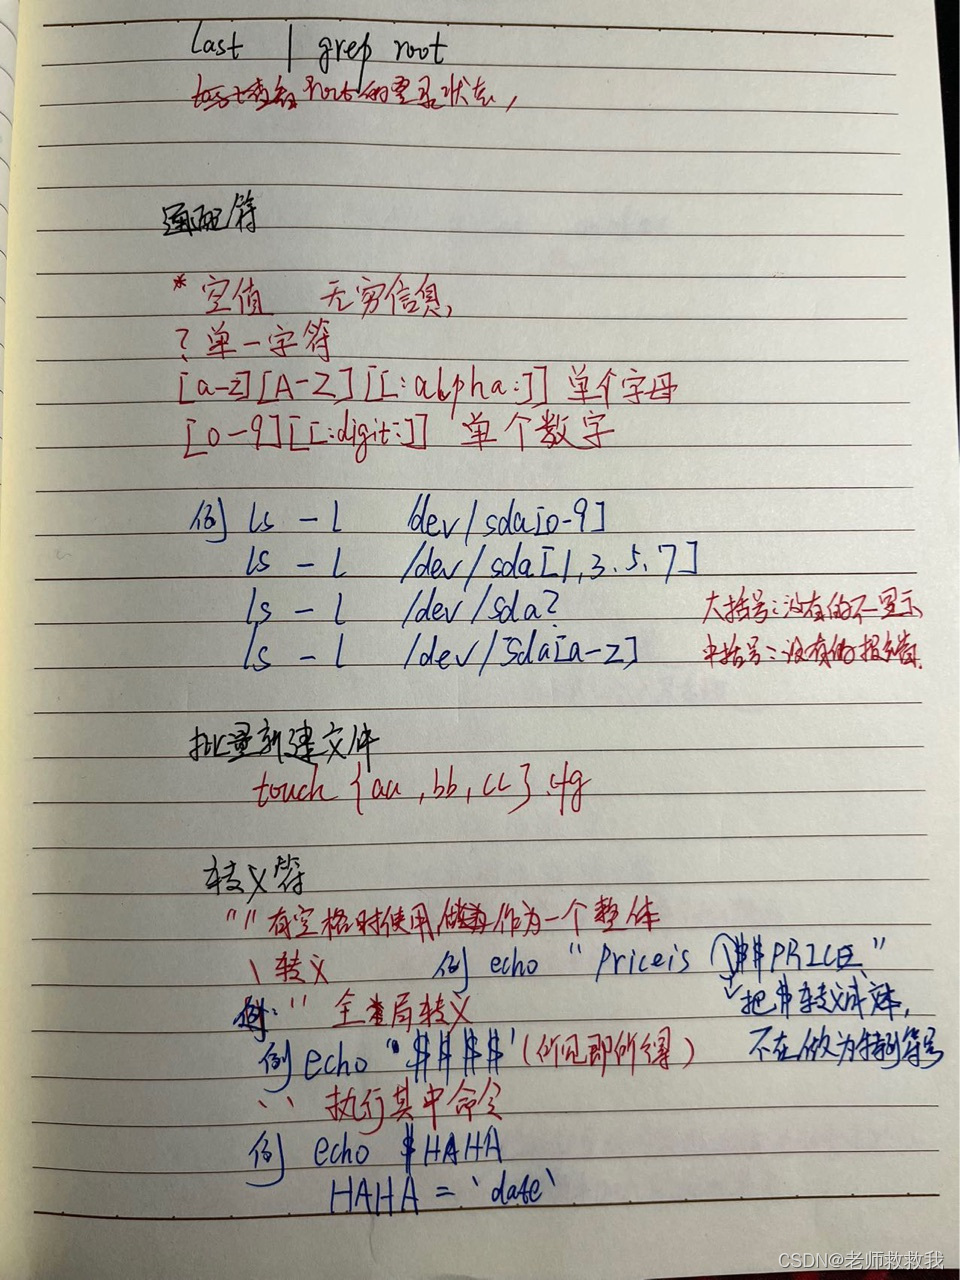 last | grep root
查看root的登录状态,
通配符
* 空值 无穷信息,
? 单一字符
[a-z][A-Z][[:alpha:]] 单个字母
[0-9][[:digit:]] 单个数字
例 ls -l /dev/sda[0-9]
ls -l /dev/sda[1,3、5、7]
ls -l /dev/sda? 大括号:没有的不显示
ls -l /dev/sda[a-z] 中括号:没有的报错.
批量新建文件
touch {aa,bb,cc}.gg
转义符
" " 有空格时使用,作为一个整体
\ 转义 例 echo "Priceis \$$PRICE"
把$转义成文本,
例: ' ' 全局转义
不在做为特别符号
例 echo '$$$$' (所见即所得)
` ` 执行其中命令
例 echo $HAHA
HAHA = `date`
CSDN@老师救救我